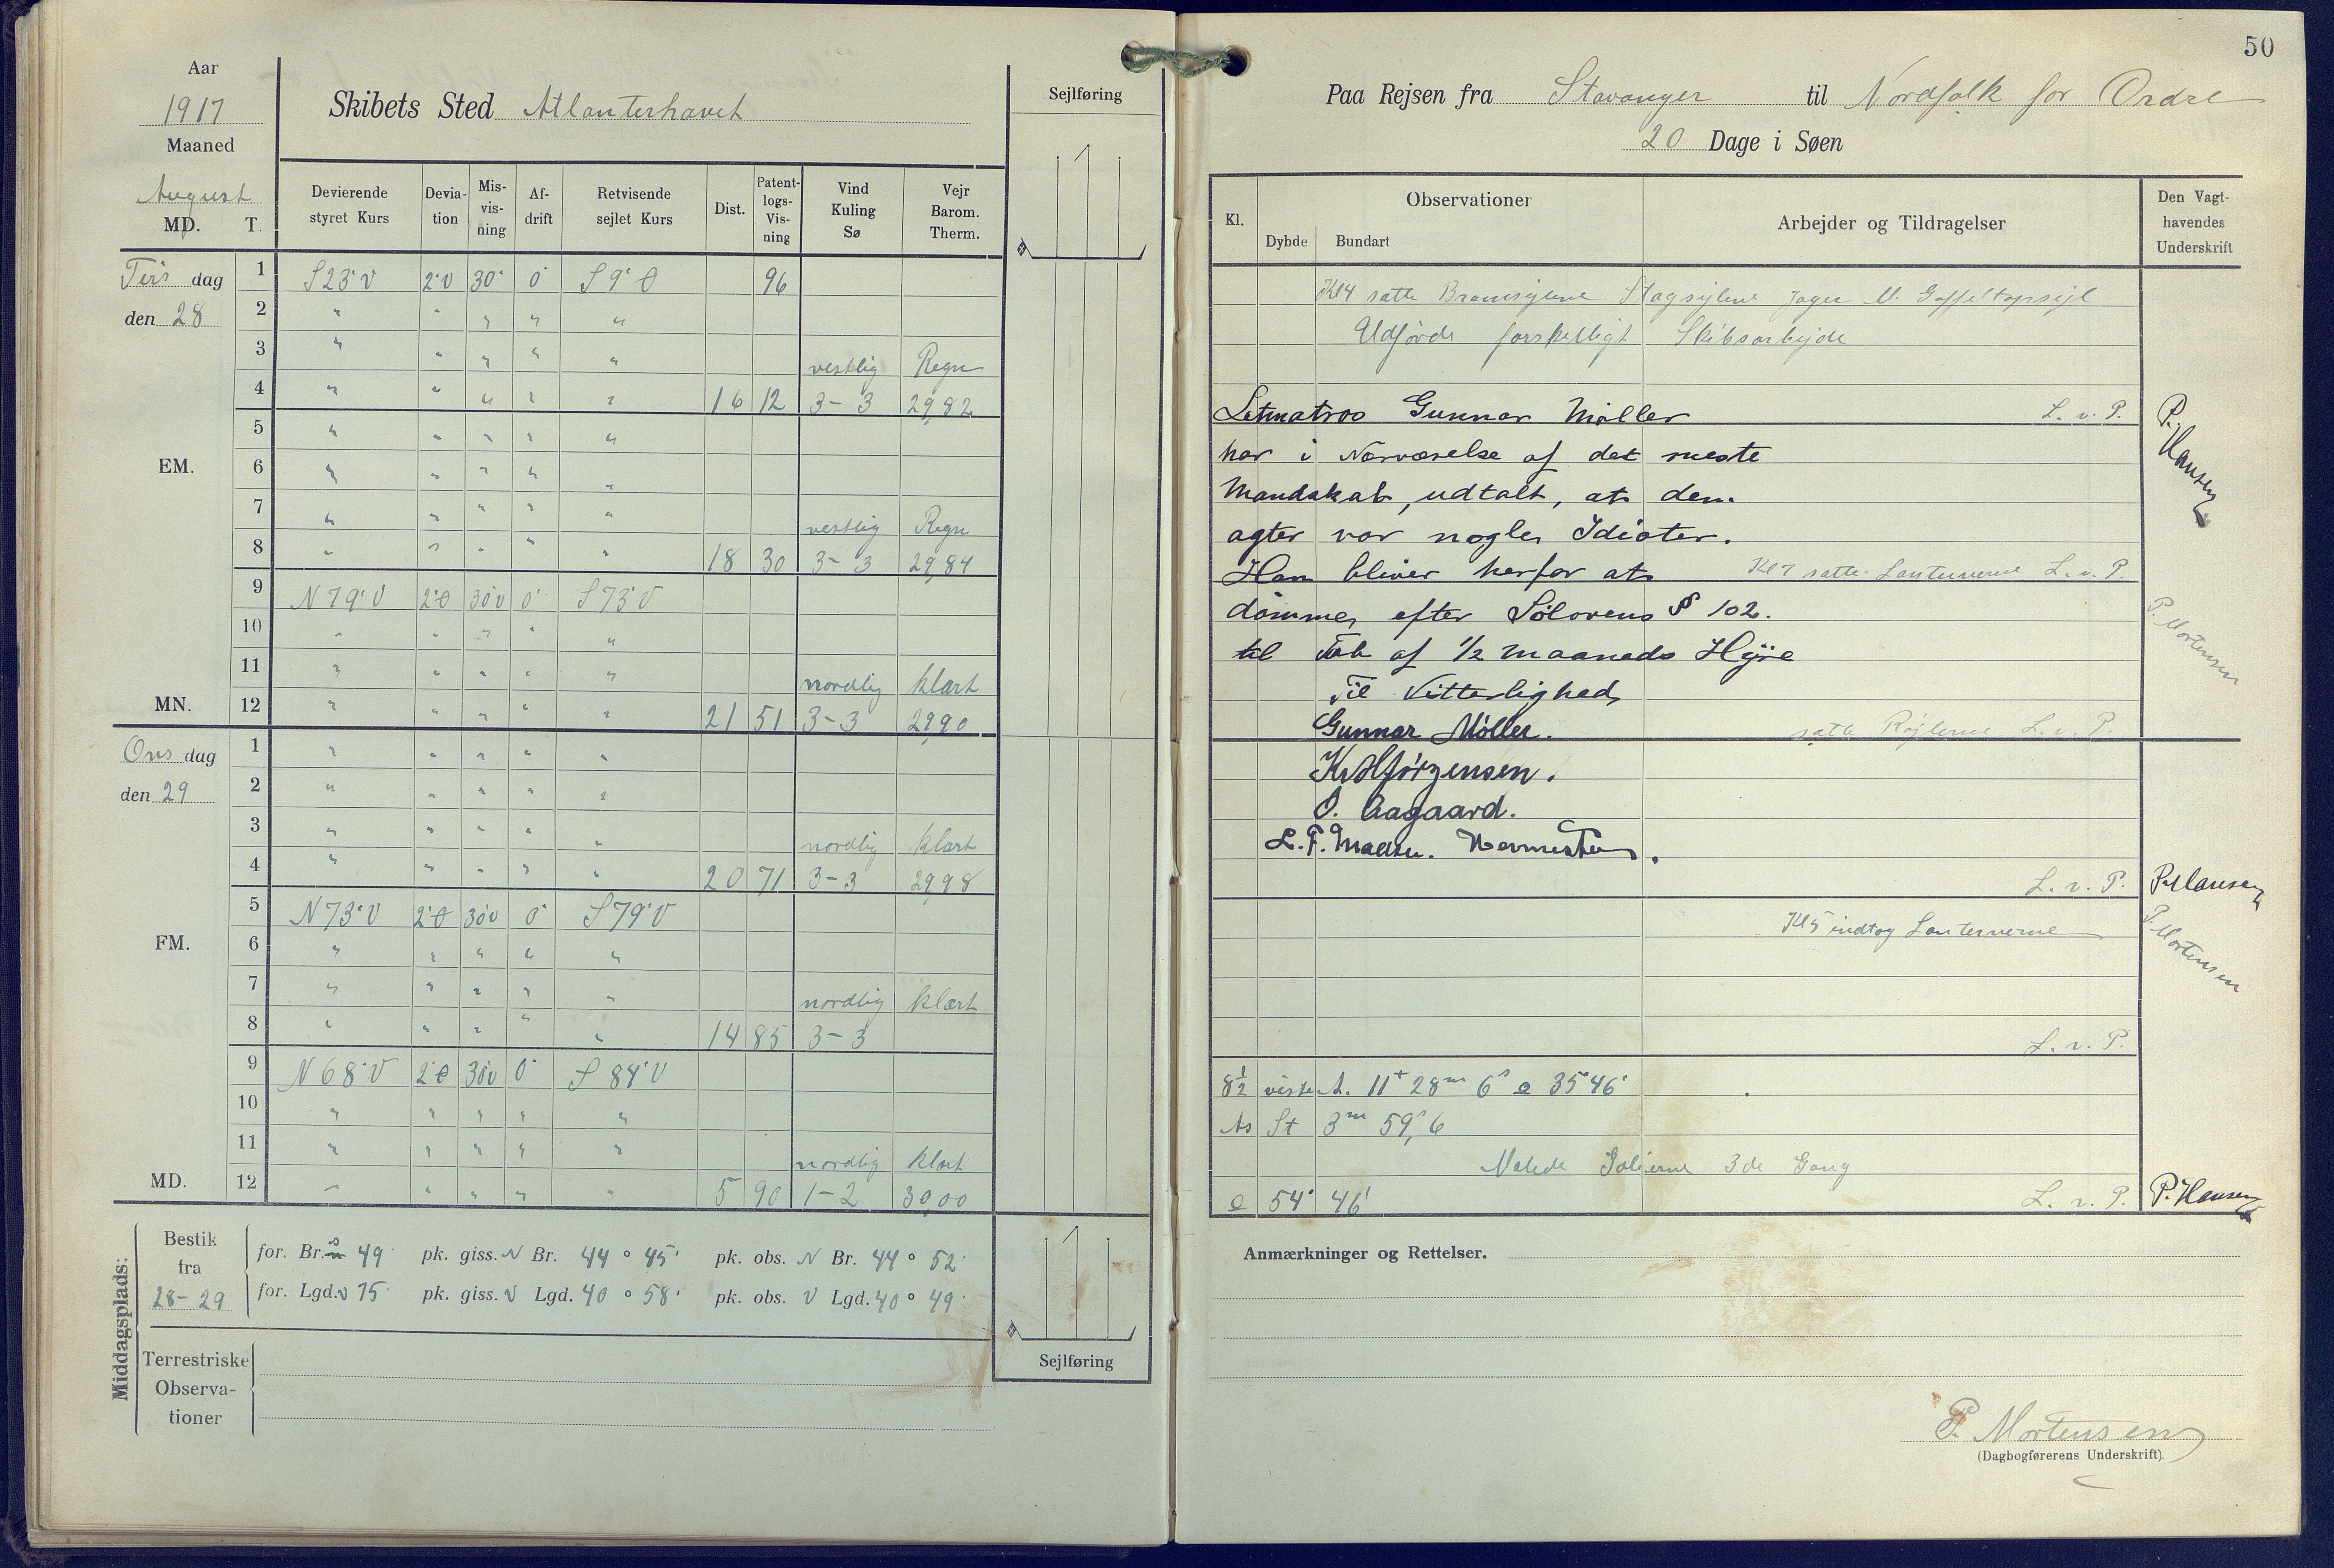 Aar
1917
Maaned
August
MD. T.
Skibets Sted Atlanterhavet
Sejlføring
Devierende styret Kurs
Devia-tion
Mis-vis-ning
Af-drift
Retvisende sejlet Kurs
Dist.
Patent-logs-Vis-ning
Vind Kuling Sø
Vejr Barom. Therm.
Tirs dag 1 S23°V 2°V 30° 0° S9°Ø 96
den 28 2 " " " " "
3 " " " " " vestlig Regn
4 " " " " " 16 12 3-3 29,82
5 " " " " "
EM. 6 " " " " "
7 " " " " " vestlig Regn
8 " " " " " 18 30 3-3 29,84
9 N79°V 2°Ø 30°V 0° S73°V
10 " " " " "
11 " " " " " nordlig klart
MN. 12 " " " " " 21 51 3-3 29,90
Ons dag 1 " " " " "
den 29 2 " " " " "
3 " " " " " nordlig klart
4 " " " " " 20 71 3-3 29,98
5 N73°V 2°Ø 30°V 0° S79°V
FM. 6 " " " " "
7 " " " " " nordlig klart
8 " " " " " 14 85 3-3
9 N68°V 2°Ø 30°V 0° S84°V
10 " " " " "
11 " " " " " nordlig klart
MD. 12 " " " " " 5 90 1-2 30,00
Middagsplads:
Bestik fra 28-29
for. Br. S 49' pk. giss. N Br. 44° 45' pk. obs. N Br. 44° 52'
for. Lgd. V 75' pk. giss. V Lgd. 40° 58' pk. obs. V Lgd. 40° 49'
Terrestriske
Observa-
tioner
Sejlføring
50
Paa Rejsen fra Stavanger til Nordfolk for Ordre
20 Dage i Søen
Kl.
Observationer
Dybde Bundart
Arbejder og Tildragelser
Den Vagt-
havendes
Underskrift
Kl 4 satte Bramsejlene Stagsejlene Jager M. Gaffeltopsejl
Udførde forskelligt Skibsarbejde
Letmatros Gunnar Møller L. v. P. P. Hansen
har i Nærværelse af det meste
Mandskab, udtalt, at dem
agter var nogle Idioter.
Han bliver herfor at Kl 7 satte Lanternerne L. v. P.
dømme efter Sølovens § 102. P. Mortensen
til Tab af 1/2 Maaneds Hyre
Til Vitterlighed
Gunnar Møller. satte Røjlerne L. v. P.
Jørgensen.
Aagaard.
L. F.
L. v. P. P. Hansen
Kl 5 indtog Lanternerne P. Mortensen
L. v. P.
8½ viste 11 28m 6s 35° 46'
St 3m 59,s6
Malede 3de Gang
54° 46' L. v. P. P. Hansen
Anmærkninger og Rettelser.
P. Mortensen
(Dagbogførerens Underskrift).